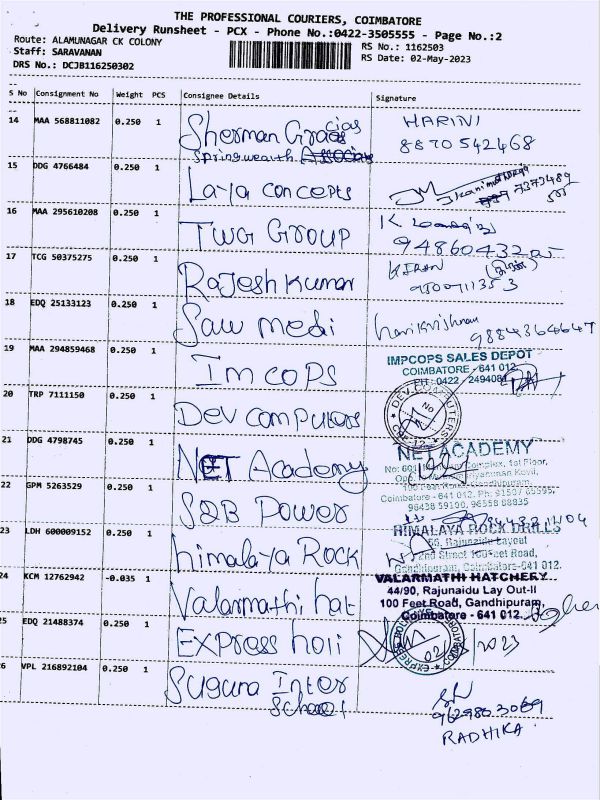 THE PROFESSIONAL COURIERS, COIMBATORE
Delivery Runsheet - PCX - Phone No.:0422-3505555 - Page No.:2
Route: ALAMUNAGAR CK COLONY
RS No.: 1162503
Staff: SARAVANAN
RS Date: 02-May-2023
DRS No.: DCJB116250302
S No Consignment No Weight PCS Consignee Details Signature
14 MAA 568811082 0.250 1 Sherman HARINI
springwealth 8870542468
15 DDG 4766484 0.250 1 Laya concepts
16 MAA 295610208 0.250 1 TWG Group K
17 TCG 50375275 0.250 1 Rajesh Kumar KIRAN
18 EDQ 25133123 0.250 1 Saw medi harikrishnan
9884364647
19 MAA 294859468 0.250 1 Imcops IMPCOPS SALES DEPOT
COIMBATORE - 641 012
PH: 0422 - 2494084
20 TRP 7111150 0.250 1 Dev computers DEV COMPUTERS
21 DDG 4798745 0.250 1 NET Academy NET ACADEMY
Coimbatore - 641 012. Ph: 91507 65595,
96438 59100, 96558 08835
22 GPM 5263529 0.250 1 S2B Power
23 LDH 600009152 0.250 1 himalaya Rock HIMALAYA ROCK DRILLS
55, Rajunaidu Layout
2nd Street 100 Feet Road,
Gandhipuram, Coimbatore-641 012.
24 KCM 12762942 -0.035 1 Valarmathi hat VALARMATHI HATCHERY
44/90, Rajunaidu Lay Out-II
100 Feet Road, Gandhipuram,
Coimbatore - 641 012.
25 EDQ 21488374 0.250 1 Express holi
26 VPL 216892104 0.250 1 Suguna Inter
School
RADHIKA